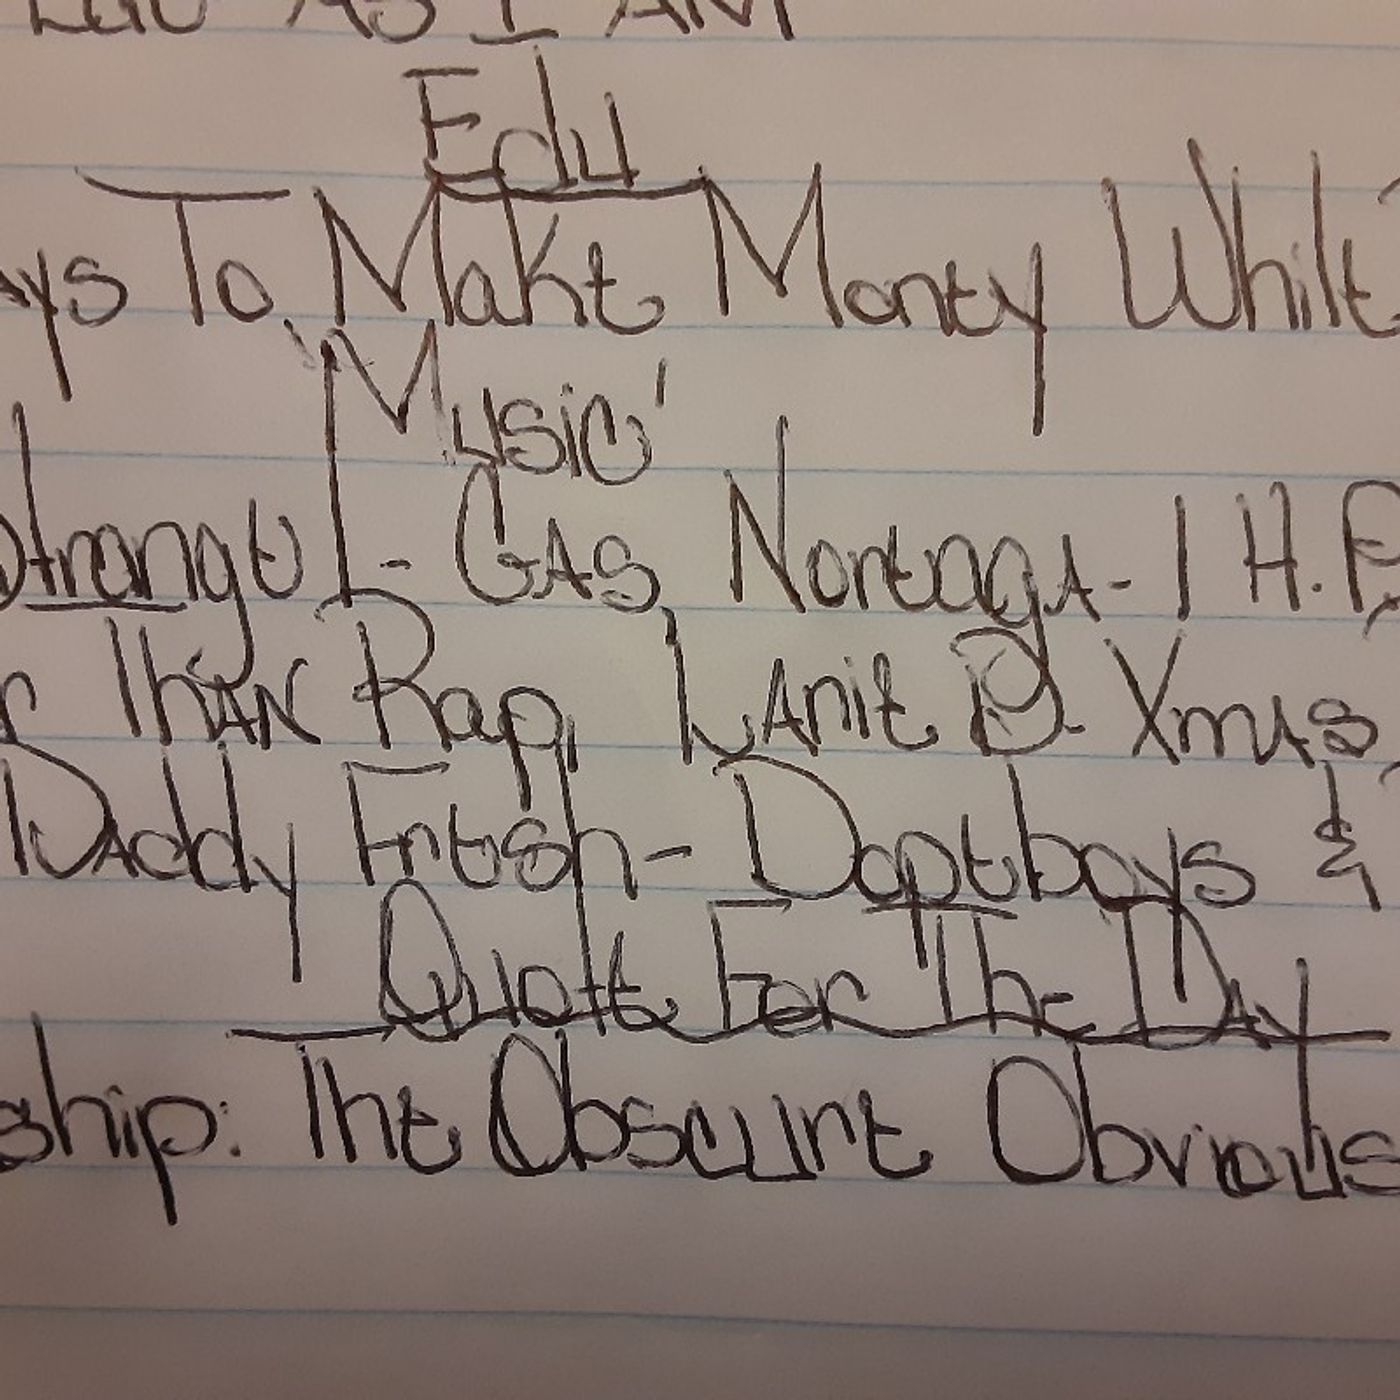 As I AM
Edu
ays To Make Money While
Music'
Strange L- GAS, Noreaga- 1 H.
r Than Rap, Lanie B. Xmas
Daddy Fresh- Dopeboys &
Quote For The Day
ship: The Obscure Obvious